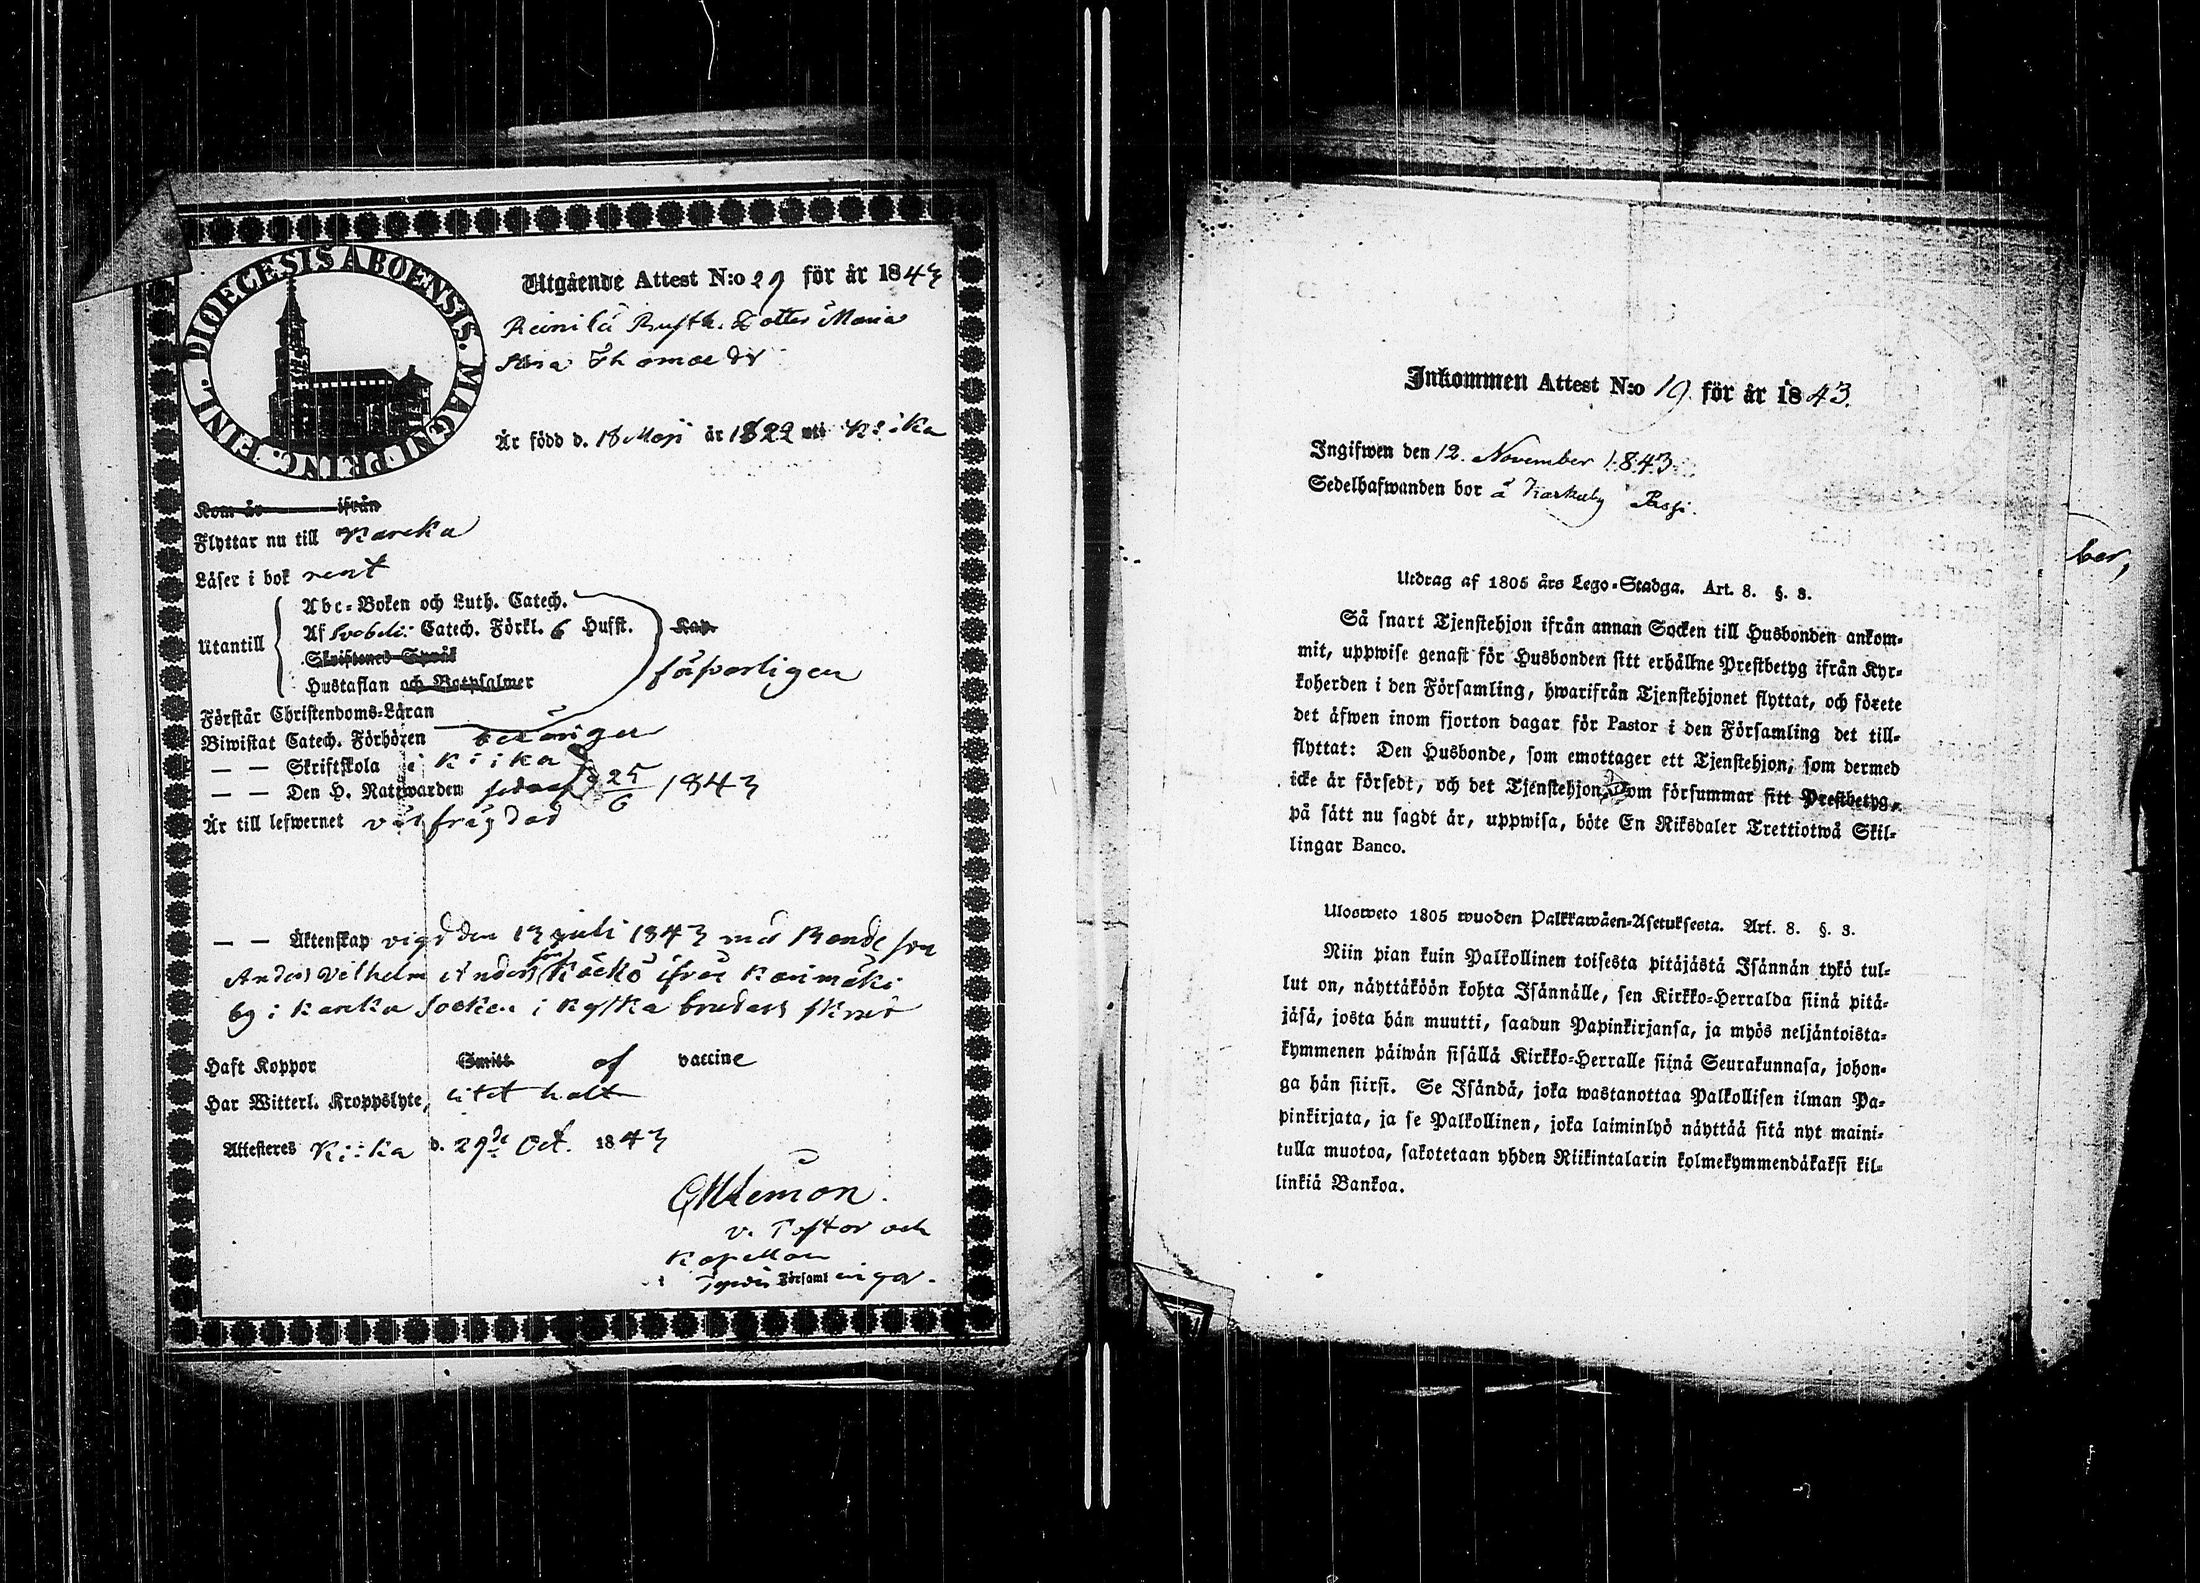 DIOECESIS ABOENSIS. MAGNI PRINC. FINL.
Utgående Attest N:o 29 för år 1843
Reinilä Rusth. Dotter Maria
Thomaedr
Är född d. 18 Maji år 1822 uti Kiika
Kom år ifrån
Flyttar nu till Karcku
Läser i bok rent
Utantill
Abc-Boken och Luth. Catech.
Af Svebelii Catech. Förkl. 6 Hufst.
Skriftenes Språk
Hustaflan och Botpsalmer
Kap.
försvarligen
Förstår Christendoms-Läran
Biwistat Catech. Förhören
— — Skriftskola i Kiika
— — Den H. Nattwarden sednast d 25/6 1843
Är till lefwernet välfrägdad
— — Äktenskap vigd den 13 juli 1843 med Bonde son
Anders Vilhelm Anders son Käckö ifrån Karimäki
by i Karcku Socken i Kyska brudens
Haft Koppor Smitt af vaccine
Har Witterl. Kroppslyte, litet halt
Attesteres Kiika d. 29de Oct. 1843
Lemon.
v. Pastor och
Kapellan
i Tyrvis Församlingar.
Inkommen Attest N:o 19 för år 1843.
Ingifwen den 12. November 1843
Sedelhafwanden bor å Karkuby Passi.
ber,
Utdrag af 1805 års Lego-Stadga. Art. 8. §. 3.
Så snart Tjenstehjon ifrån annan Socken till Husbonden ankom-
mit, uppwise genast för Husbonden sitt erhållne Prestbetyg ifrån Kyr-
koherden i den Församling, hwarifrån Tjenstehjonet flyttat, och förete
det äfwen inom fjorton dagar för Pastor i den Församling det till-
flyttat: Den Husbonde, som emottager ett Tjenstehjon, som dermed
icke är försedt, och det Tjenstehjon, som försummar sitt Prestbetyg,
på sätt nu sagdt är, uppwisa, böte En Riksdaler Trettiotwå Skil-
lingar Banco.
Ulosweto 1805 wuoden Palkkawäen-Asetuksesta. Art. 8. §. 3.
Niin pian kuin Palkollinen toisesta pitäjästä Isännän tykö tul-
lut on, näyttäköön kohta Isännälle, sen Kirkko-Herralda siinä pitä-
jäsä, josta hän muutti, saadun Papinkirjansa, ja myös neljäntoista-
kymmenen päiwän sisällä Kirkko-Herralle siinä Seurakunnasa, johon-
ga hän siirsi. Se Isändä, joka wastanottaa Palkollisen ilman Pa-
pinkirjata, ja se Palkollinen, joka laiminlyö näyttää sitä nyt maini-
tulla muotoa, sakotetaan yhden Riikintalarin kolmekymmendäkaksi kil-
linkiä Bankoa.